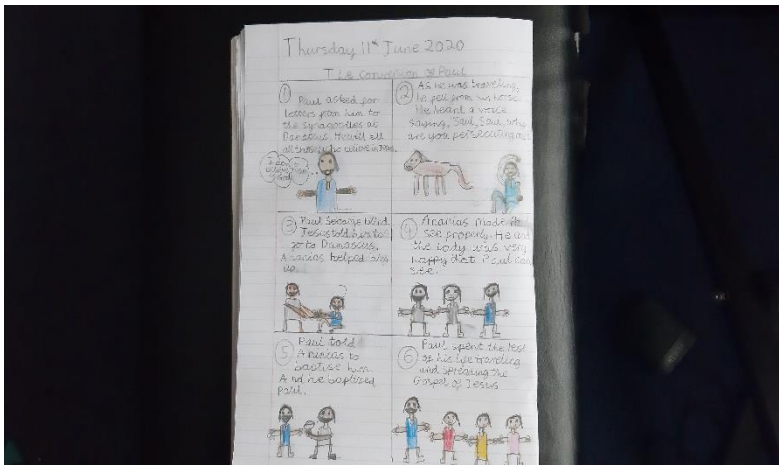 Thursday 11th June 2020
The Conversion of Paul
1
Paul asked for
letters from him to
the synagogues at
Damascus. He will
all those who believe in Jesus.
I don't
believe
2
As he was travelling,
he fell from his horse.
He heard a voice
saying, "Saul, Saul, why
are you persecuting me?
3
Paul became blind
Jesus told him to
go to Damascus.
Ananias helped him
up.
4
Ananias made
see properly. He and
the body was very
happy that Paul can
see.
5
Paul told
Ananias to
baptise him.
And he baptised
Paul.
6
Paul spent the rest
of his life traveling
and spreading the
Gospel of Jesus